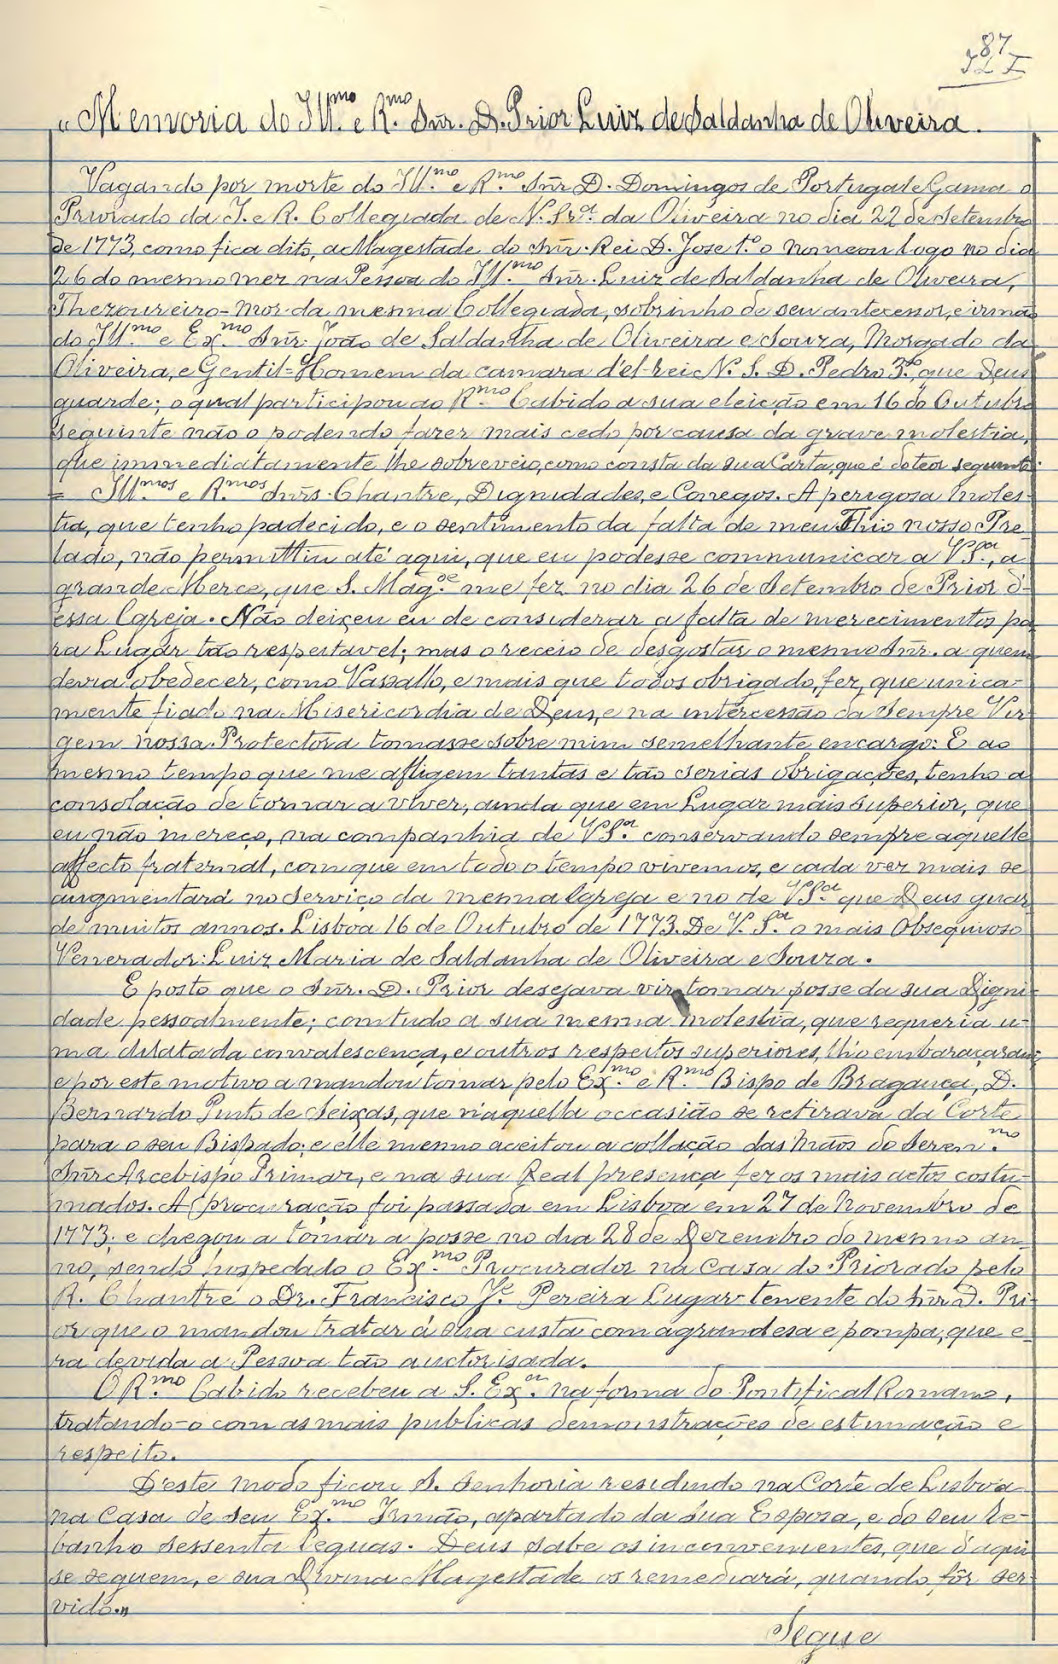 87
„Memoria do Ill.mo e R.mo Snr. D. Prior Luiz de Saldanha de Oliveira.
Vagando por morte do Ill.mo e R.mo Snr D. Domingos de Portugal e Gama o
Priorado da I. e R. Collegiada de N. Sr.a da Oliveira no dia 22 de Setembro
de 1773, como fica dito, a Magestade do Snr. Rei D. Jose 1.o o nomeou logo no dia
26 do mesmo mez na Pessoa do Ill.mo Snr. Luiz de Saldanha de Oliveira,
Thezoureiro-Mor da mesma Collegiada, sobrinho de seu antecessor, e irmão
do Ill.mo e Ex.mo Snr. João de Saldanha de Oliveira e Souza, Morgado da
Oliveira, e Gentil=Homem da camara d'el-rei N. S. D. Pedro 3.o, que Deus
guarde; o qual participou ao R.mo Cabido a sua eleição em 16 de Outubro
seguinte não o podendo fazer mais cedo por causa da grave molestia,
que immediátamente lhe sobreveio, como consta da sua Carta, que é do teor seguinte:
= Ill.mos e R.mos Snrs. Chantre, Dignidades, e Conegos. A perigosa moles-
tia, que tenho padecido, e o sentimento da falta de meu Thio nosso Pre-
lado, não permittiu até aqui, que eu podesse communicar a V.S.a, a
grande Merce, que S. Mag.de me fez no dia 26 de Setembro de Prior d'-
essa Igreja. Não deixeu eu de considerar a falta de merecimentos pa-
ra Lugar tão respeitavel; mas o receio de desgostar o mesmo Snr. a quem
devia obedecer, como Vassallo, e mais que todos obrigado, fez, que unica-
mente fiado na Misericordia de Deus, e na intercessão da sempre Vir-
gem nossa Protectora tomasse sobre mim semelhante encargo: E ao
mesmo tempo que me afligem tantas e tão serias obrigações, tenho a
consolação de tornar a viver, ainda que em Lugar mais superior, que
eu não mereço, na companhia de V.S.a conservando sempre aquelle
affecto fraternal, com que em todo o tempo vivemos, e cada vez mais se
augmentará no serviço da mesma Igreja e no de V.S.a que Deus guar-
de muitos annos. Lisboa 16 de Outubro de 1773. De V. S.a o mais Obsequioso
Venerador: Luiz Maria de Saldanha de Oliveira e Souza.
E posto que o Snr. D. Prior desejava vir tomar posse da sua Digni-
dade pessoalmente; comtudo a sua mesma molestia, que requeria u-
ma dilatada convalescença, e outros respeitos superiores, lh'o embaraçaram
e por este motivo a mandou tomar pelo Ex.mo e R.mo Bispo de Bragança, D.
Bernardo Pinto de Seixas, que n'aquella occasião se retirava da Corte
para o seu Bispado; e elle mesmo aceitou a collação das Mãos do Seren.mo
Snr Arcebispo Primaz, e na sua Real presença fez os mais actos costu-
mados. A procuração foi passada em Lisboa em 27 de Novembro de
1773; e chegou a tomar a posse no dia 28 de Dezembro do mesmo an-
no, sendo hospedado o Ex.mo Procurador na Casa do Priorado pelo
R. Chantre o Dr. Francisco J.e Pereira Lugar-tenente do Snr D. Pri-
or que o mandou tratar á sua custa com a grandesa e pompa, que e-
ra devida a Pessoa tão auctorisada.
O R.mo Cabido recebeu a S. Ex.cia na forma do Pontifical Romano,
tratando-o com as mais publicas demonstrações de estimação e
respeito.
D'este modo ficou S. Senhoria residindo na Corte de Lisboa
na Casa de seu Ex.mo Irmão, apartado da sua Esposa, e do seu Re-
banho sessenta leguas. Deus sabe os inconvenientes, que d'aqui
se seguem, e sua Divina Magestade os remediará, quando fôr ser-
vido."
Segue